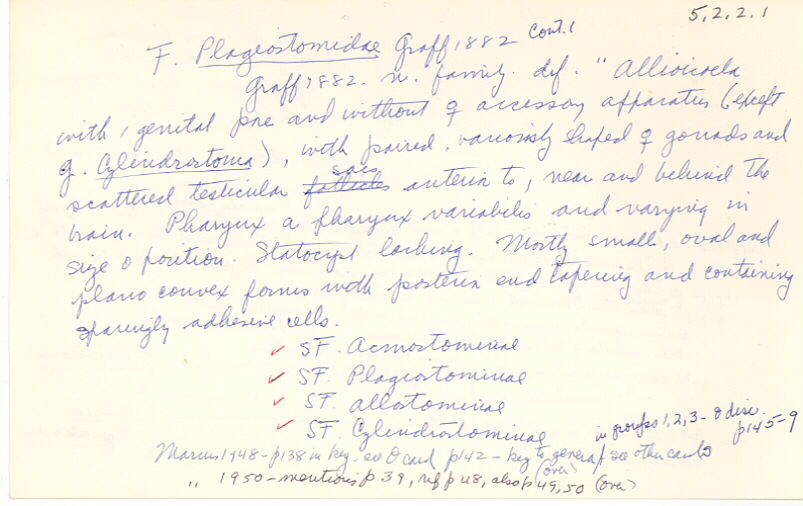 5,2,2.1
F. Plagiostomidae Graff 1882 cont.1
Graff 1882 - n. family. def. "Alloiocoela
with 1 genital pore and without ♀ accessory apparatus (except
g. Cylindrostoma), with paired, variously shaped ♀ gonads and
scattered testicular follicles sacs anterior to, near and behind the
brain. Pharynx a pharynx variabilis and varying in
size & position. Statocyst lacking. Mostly small, oval and
plano convex forms with posterior end tapering and containing
sparingly adhesive cells.
✓ SF. Acmostominae
✓ SF. Plagiostominae
✓ SF. Allostominae
✓ SF. Cylindrostominae
in groups 1,2,3- & disc. p145-9
Marcus 1948-p138 in key - see & card p142 - key to genera/ see other cards (over)
" 1950-mentions p39, ref p48, also p49,50 (over)